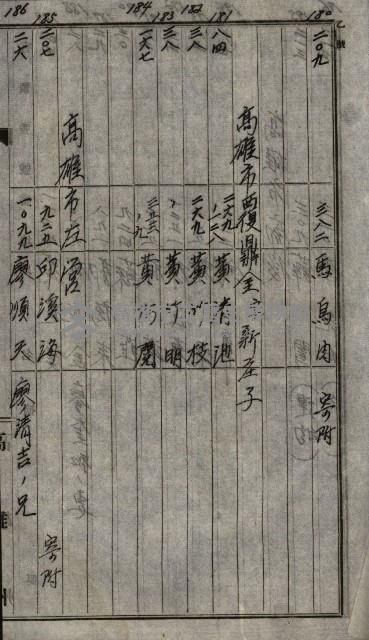 乙號
180 二〇九 三八二 馬烏肉 寄附
高雄市覆鼎金字新庄子
181 八四 二六九ノ一二八 黃清池
182 三八 二六九 黃竹枝
183 三八 〃 黃竹明
184 一六七 三五三ノ九 黃蘭
高雄市左營
185 二〇七 九二五 邱溪海 寄附
186 二六 一〇九九 廖順天 廖清吉ノ兄
高雄州